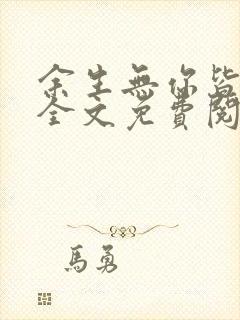 余生無你皆
全文免費閱
馬勇